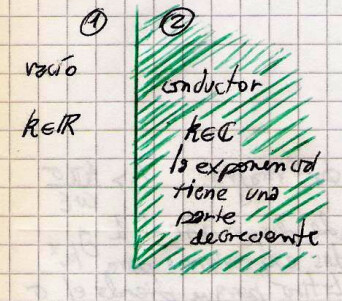 ① ②
vacío
conductor
k∈ℝ
k∈ℂ
la exponencial
tiene una
parte
decreciente